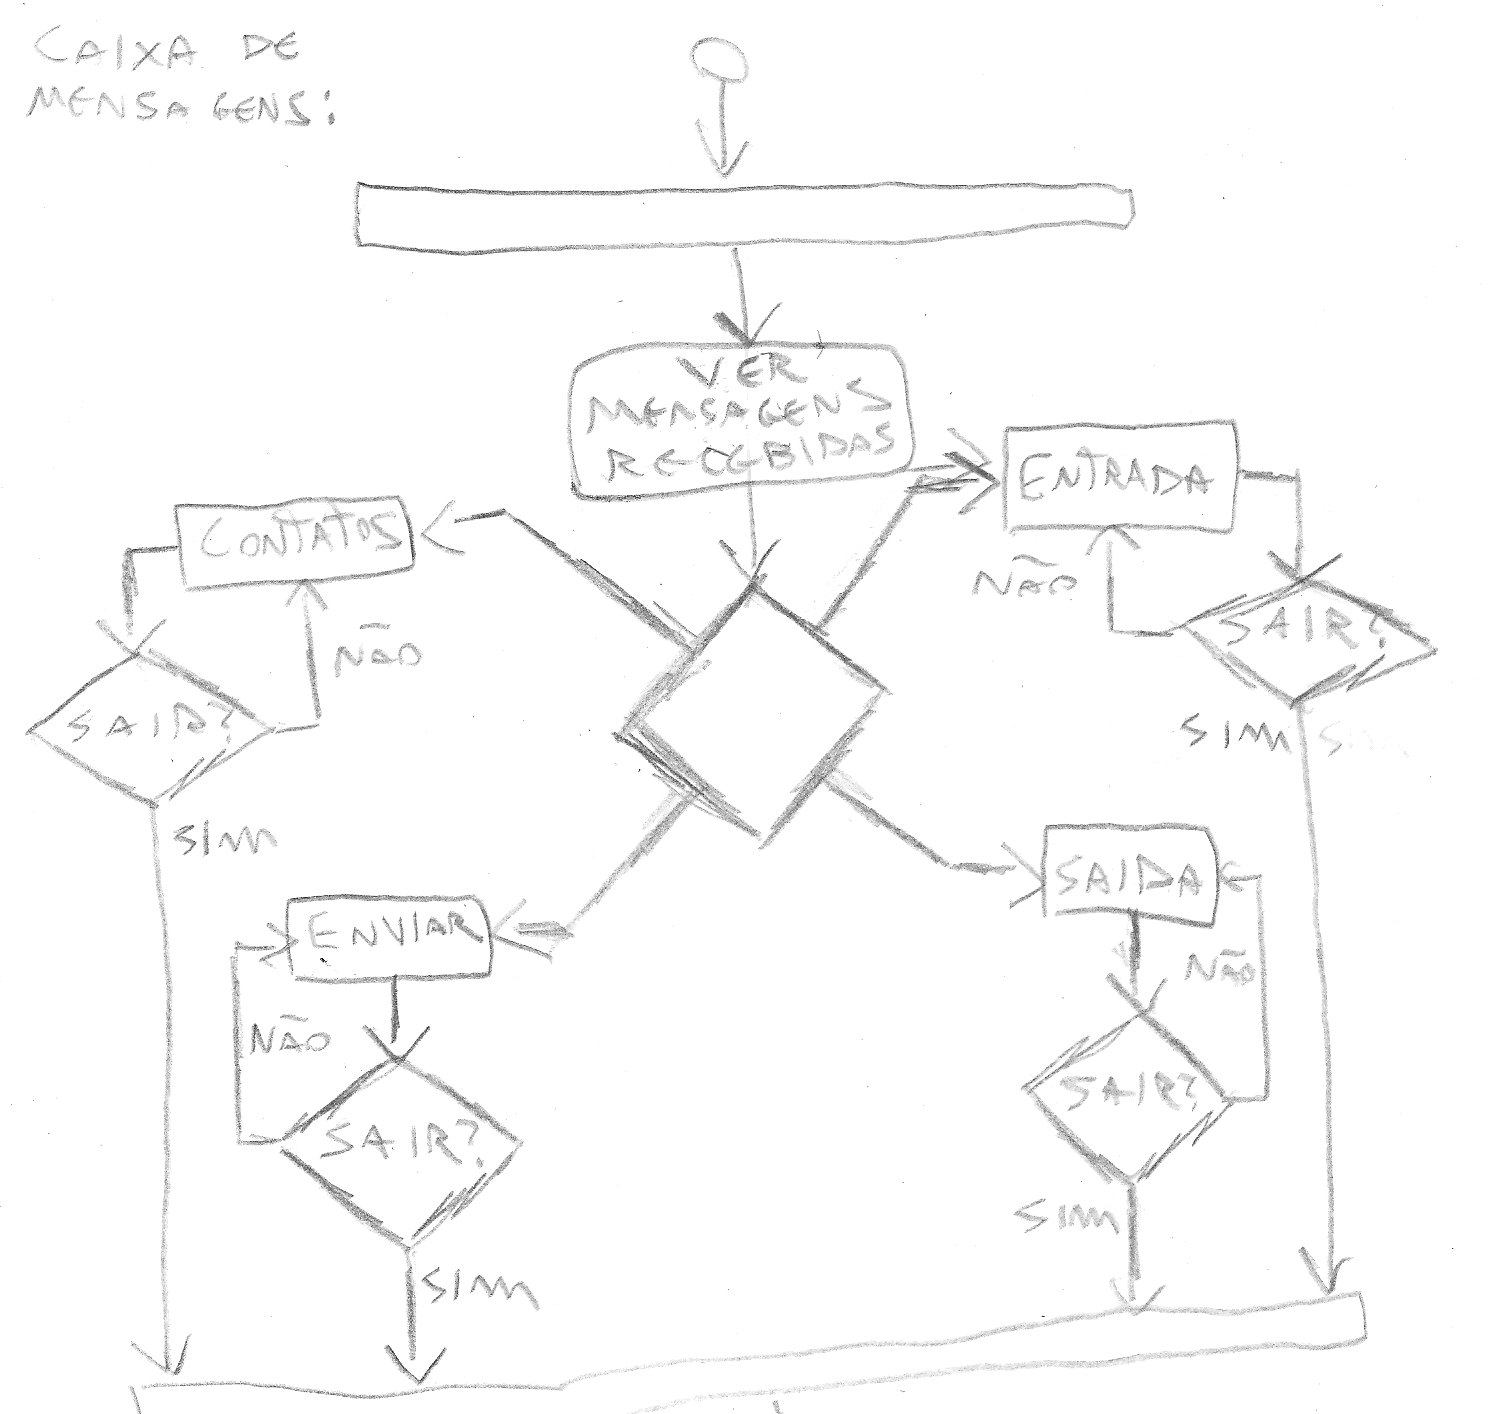 CAIXA DE
MENSAGENS:
VER
MENSAGENS
RECEBIDAS
ENTRADA
NÃO
SAIR?
SIM
CONTATOS
NÃO
SAIR?
SIM
ENVIAR
NÃO
SAIR?
SIM
SAIDA
NÃO
SAIR?
SIM